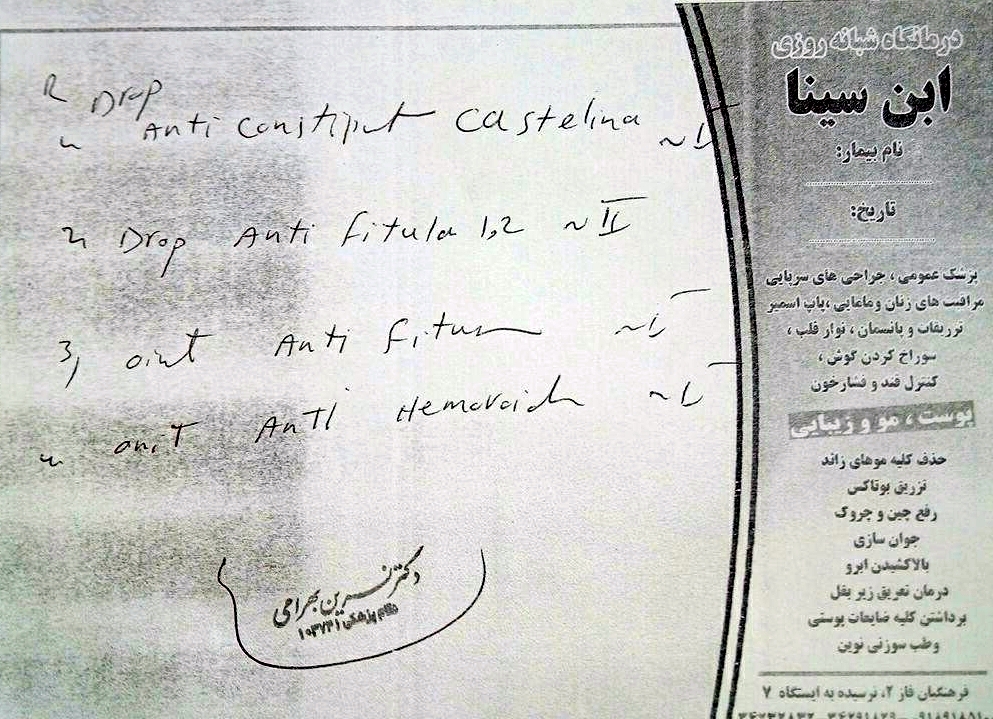 R Drop
Anti Constiput Castelina ~ I
2) Drop Anti fitula 1,2 ~ II
3) oint Anti fitu ~ I
4) onit Anti Hemoroid ~ I
دکتر نسرین بهرامی
نظام پزشکی ۱۰۳۷۴۱
درمانگاه شبانه روزی
ابن سینا
نام بیمار:
تاریخ:
پزشک عمومی ، جراحی های سرپایی
مراقبت های زنان ومامایی ،پاپ اسمیر
تزریقات و پانسمان ، نوار قلب ،
سوراخ کردن گوش ،
کنترل قند و فشارخون
پوست ، مو و زیبایی
حذف کلیه موهای زائد
تزریق بوتاکس
رفع چین و چروک
جوان سازی
بالاکشیدن ابرو
درمان تعریق زیر بغل
برداشتن کلیه ضایعات پوستی
وطب سوزنی نوین
فرهنگیان فاز ۲، نرسیده به ایستگاه ۷